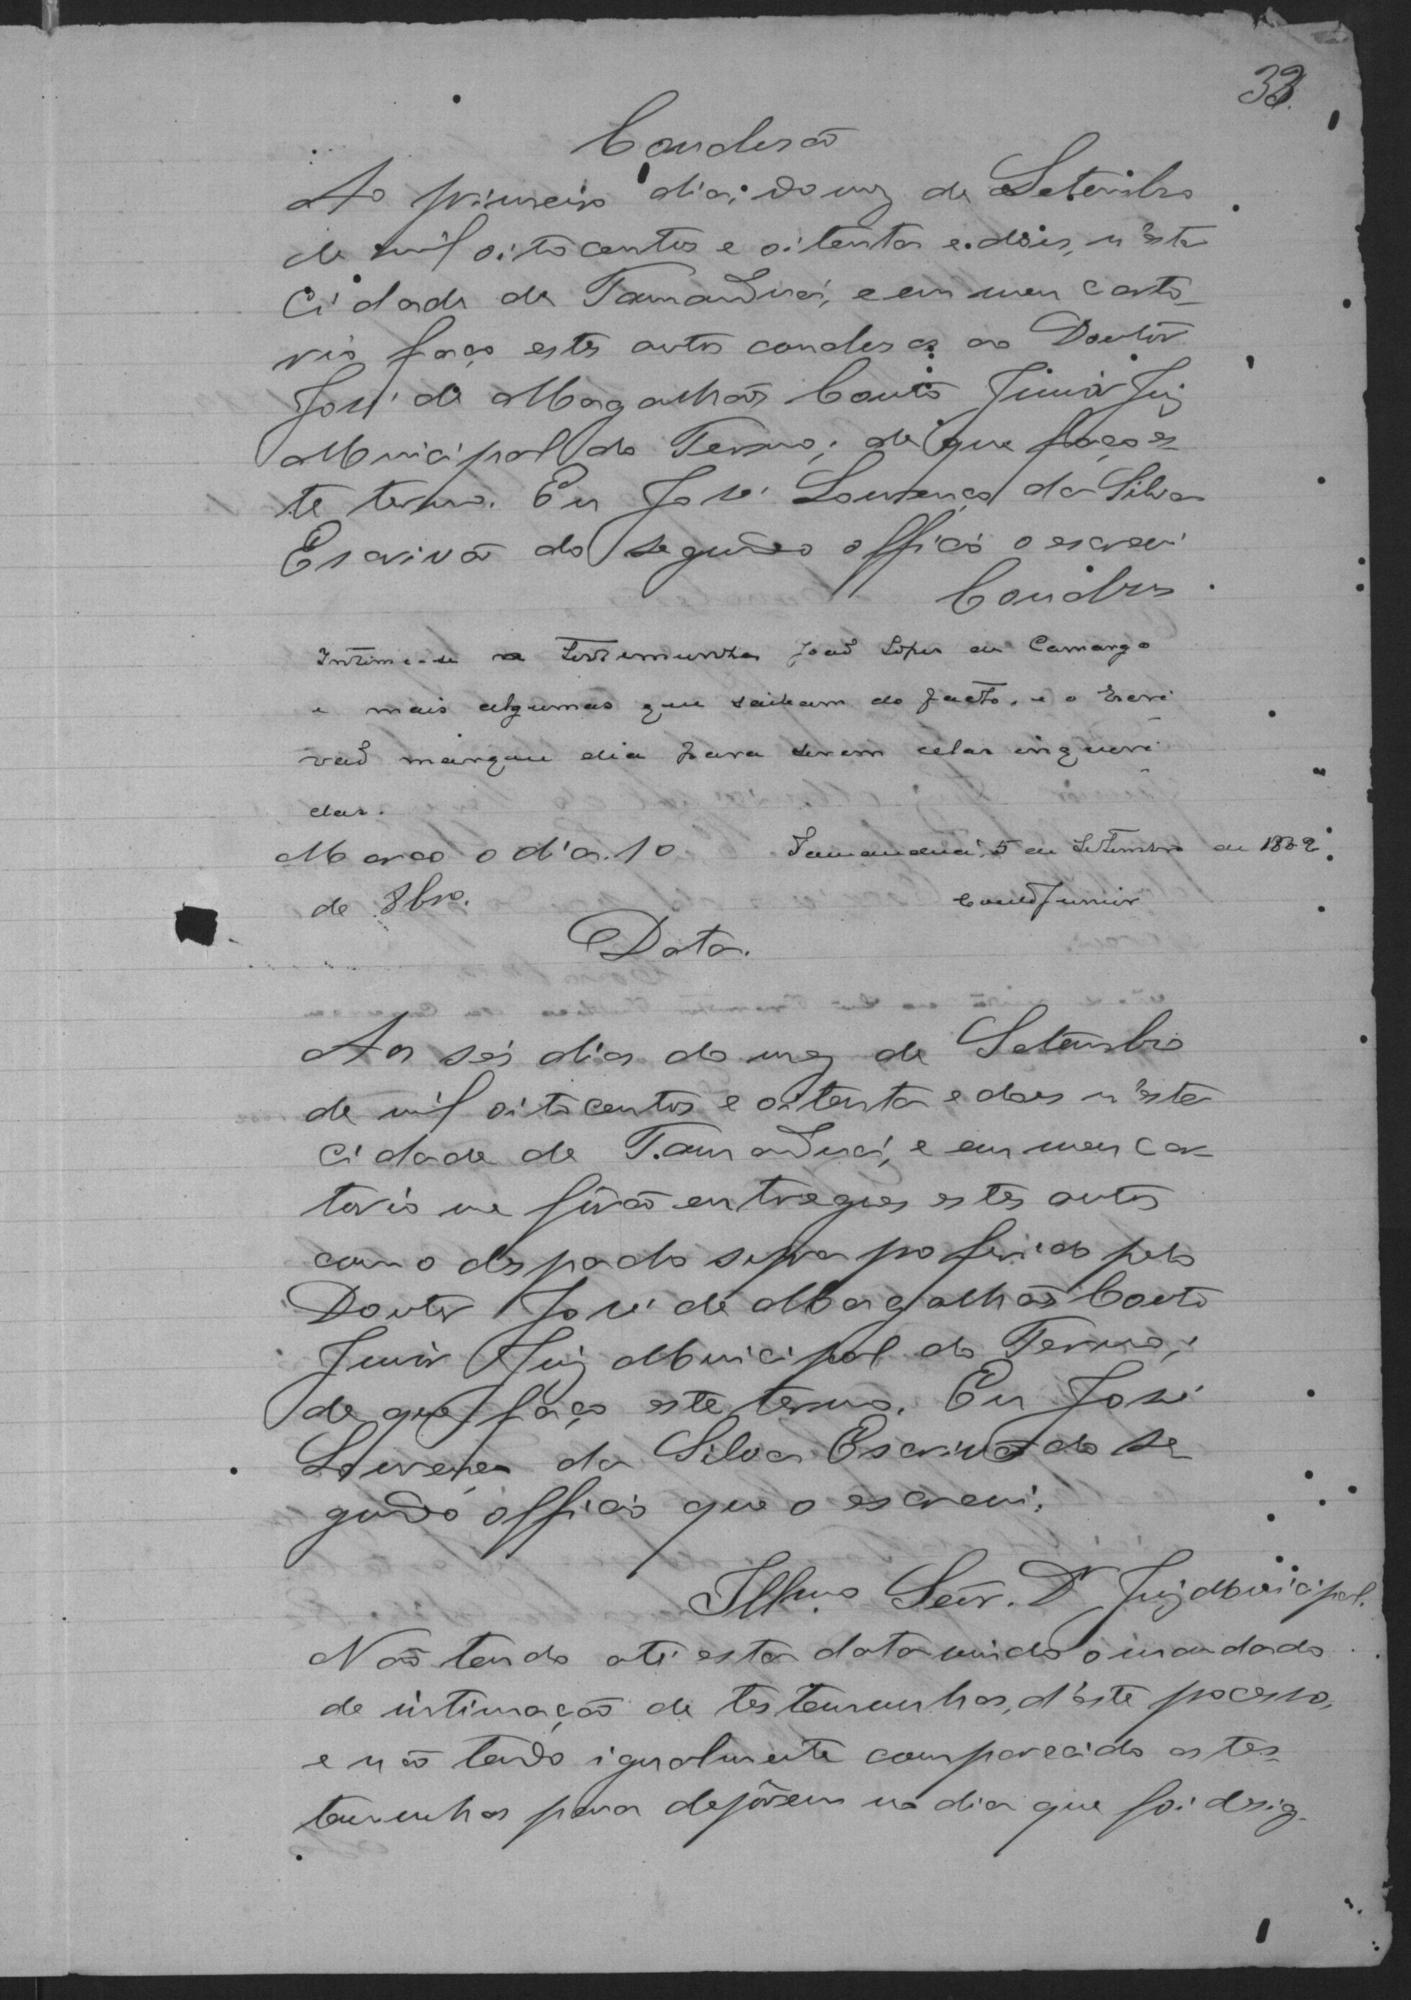 33.
Concluzão
Ao primeiro dia do mez de Setembro
de mil oito centos e oitenta e dois, n'esta
Cidade de Tamanduá, e em meu carto-
rio faço estes autos concluzos ao Doutor
José de Magalhães Couto Junior Juiz
Municipal do Termo; de que faço es-
te termo. Eu José Lourenço da Silva
Escrivão do segundo officio o escrevi
Concluzos
Intime-se a testemunha João Lopes de Camargo
e mais algumas que saibam do facto, e o Escri
vão marque dia para serem ellas inqueri
das.
Marco o dia 10
de 8bro.
Tamanduá, 5 de Setembro de 1882
Couto Junior
Data.
Aos seis dias do mez de Setembro
de mil oito centos e oitenta e dois n'esta
Cidade de Tamanduá, e em meu car-
torio me forão entregues estes autos
com o despacho supra proferido pelo
Doutor José de Magalhães Couto
Junior Juiz Municipal do Termo;
de que faço este termo. Eu José
Lourenço da Silva Escrivão do se
gundo officio que o escrevi.
Illmo Senr. Dr Juiz Municipal.
Não tendo até esta data vindo o mandado
de intimação de testemunhas, d'este processo,
e não tendo igualmente comparecido as tes-
temunhas para deporem no dia que foi desig-